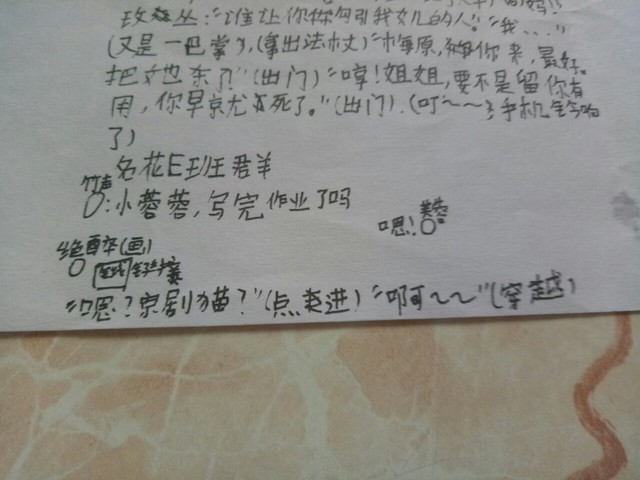 玫丛："谁让你你勾引我女儿的人。""我..."
(又是一巴掌)，(拿出法杖)"梅原，你来，最好
把她东了"(出门)"哼！姐姐，要不是留你有
用，你早京尤死了。"(出门).(叮～～手机铃响
了)
名花E班君羊
竹声：小蓉蓉，写完作业了吗
嗯！芙蓉
绝醉(画)
链接
"嗯？京剧猫？"(点进)"啊～～"(穿越)